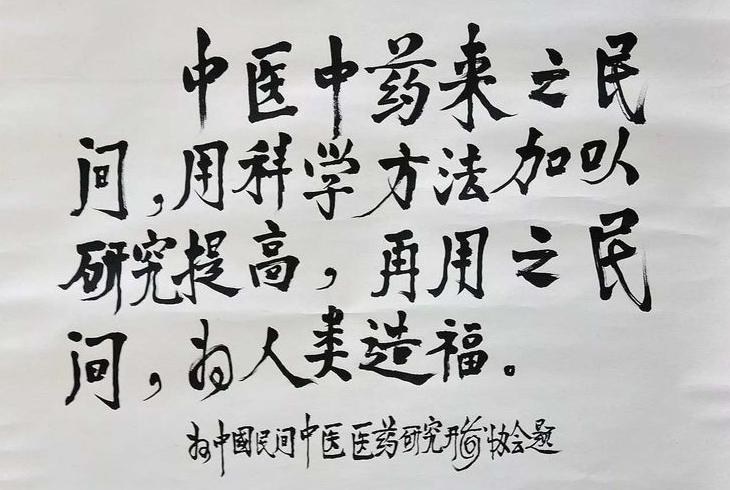 中医中药来之民
间，用科学方法加以
研究提高，再用之民
间，为人类造福。
为中國民间中医医药研究开发协会题